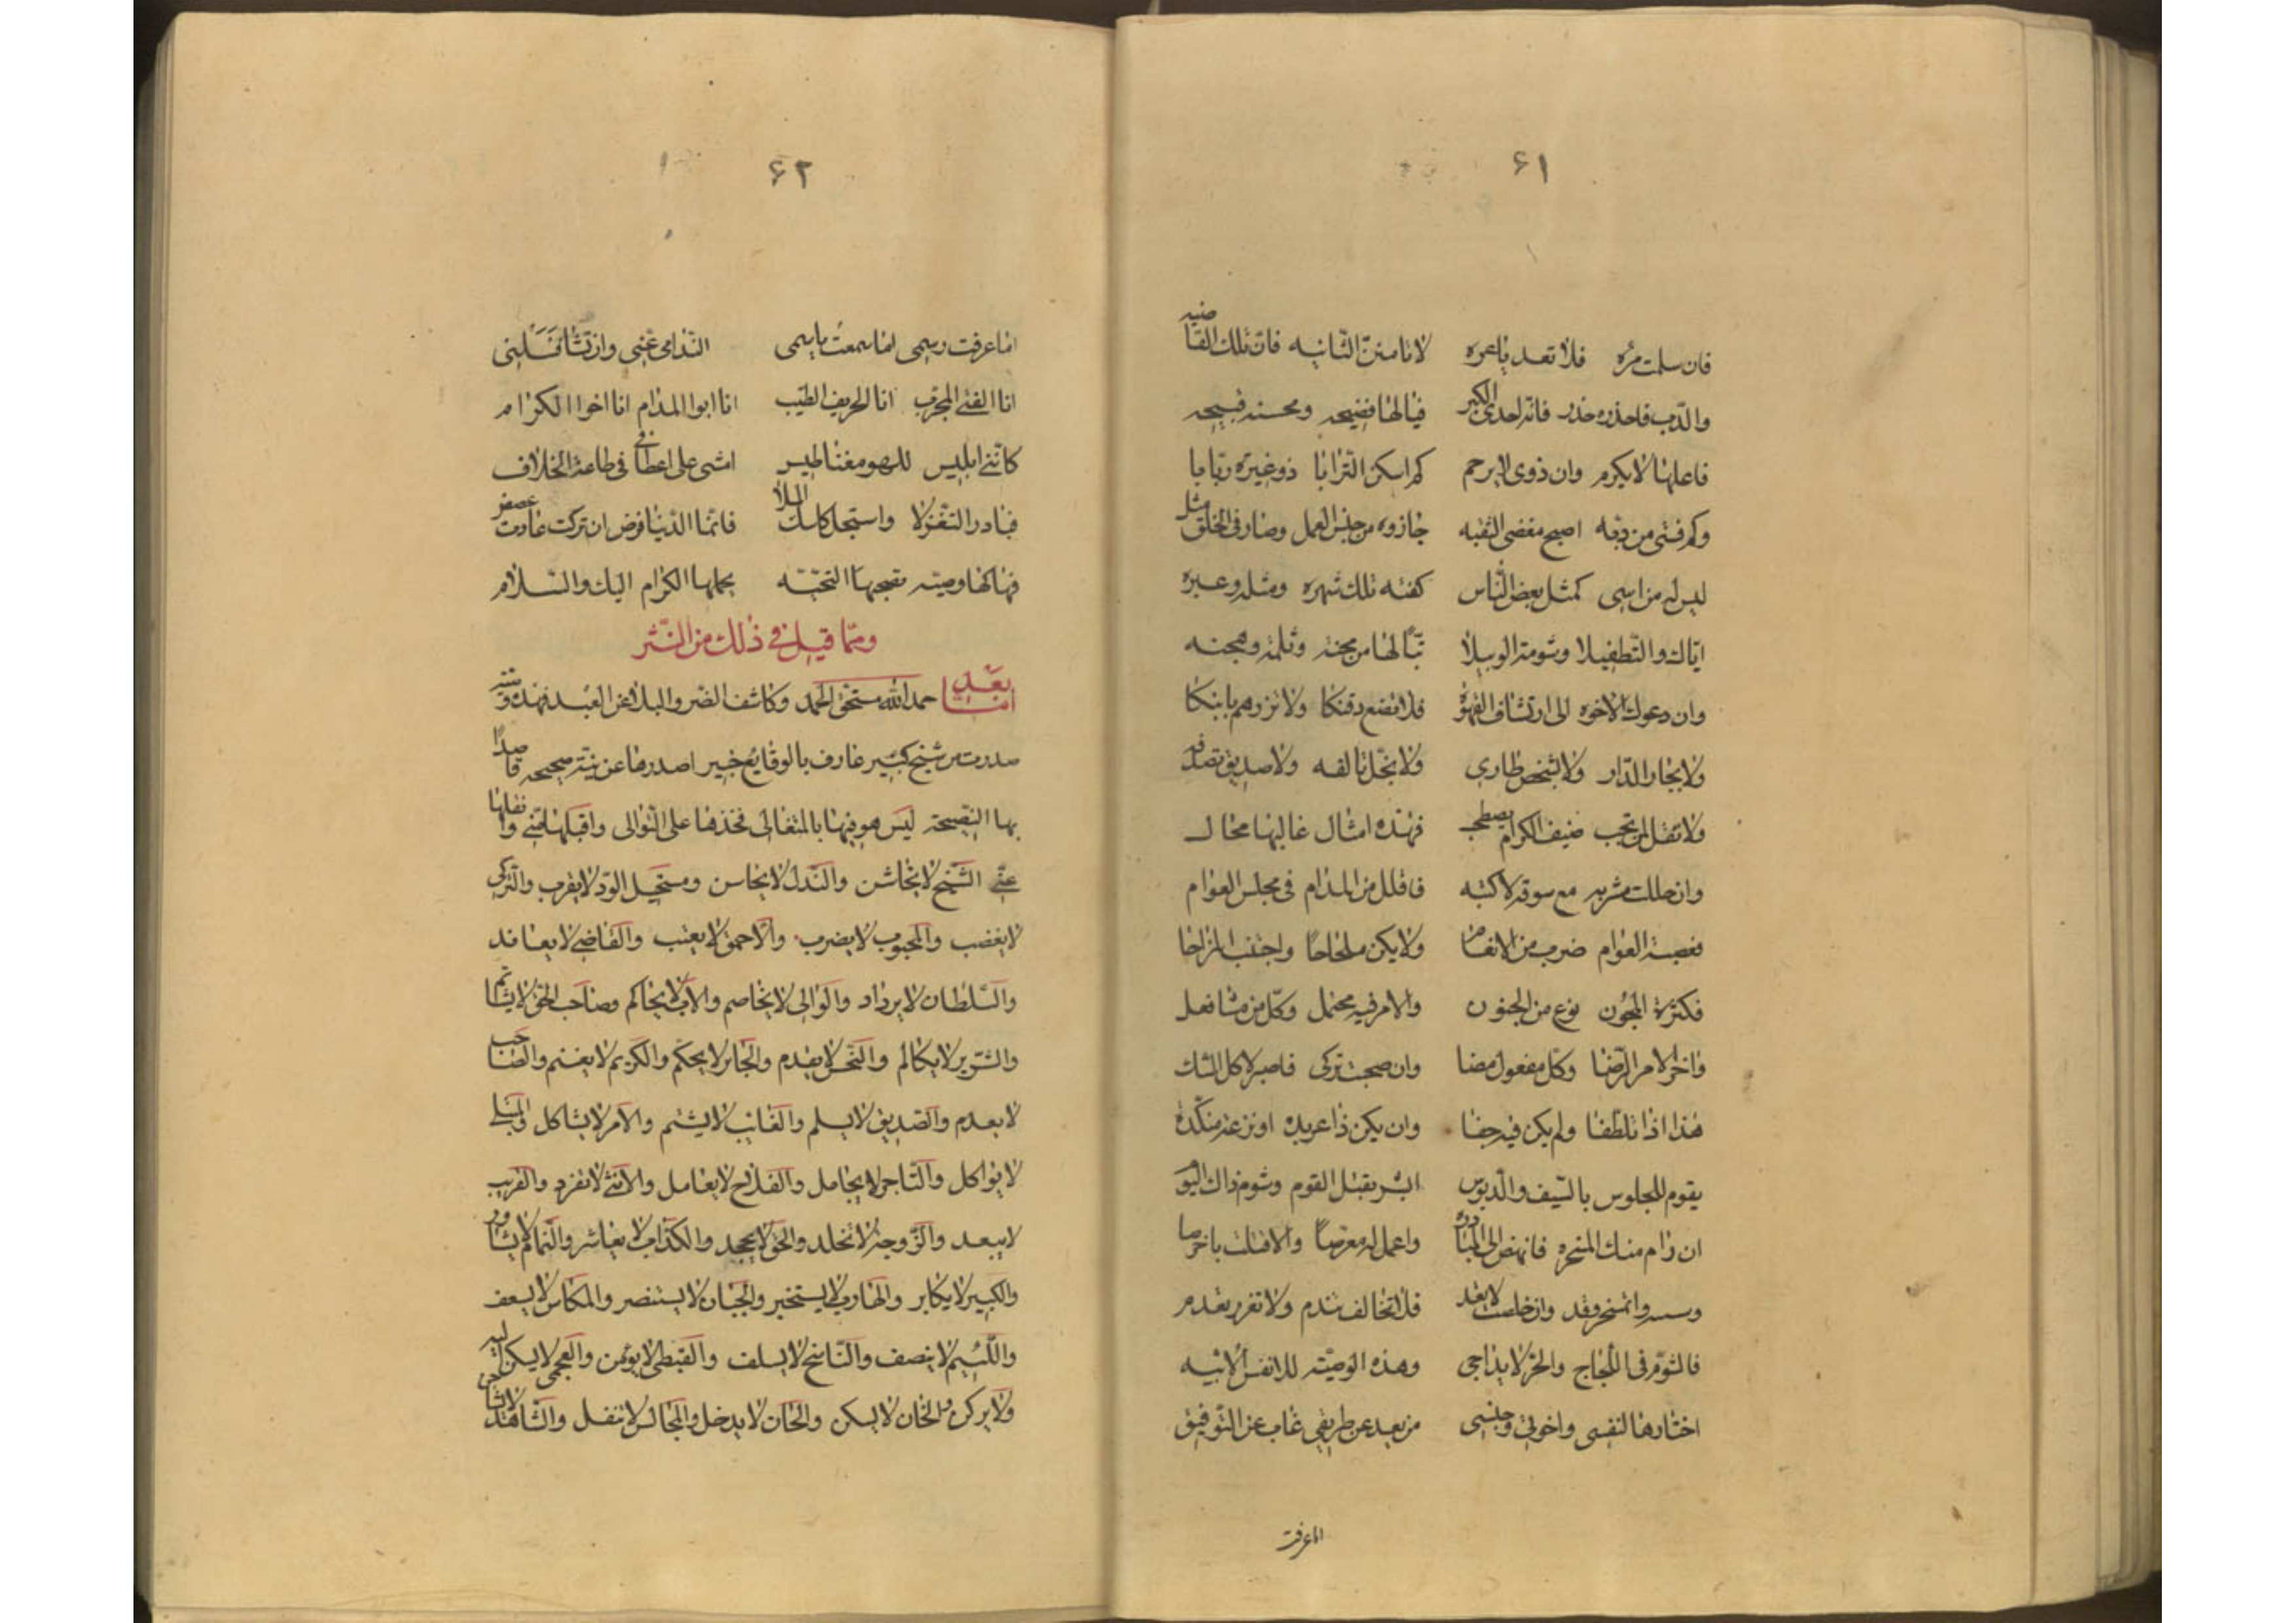 ۶۱
فان سلمت مره فلا تعد باعره لا تامنن الثانيه فان تلك القاضيه
والدب فاحذره حذر فانه احدى الكبر فيالها فضيحه ومحسنه قبيحه
فاعلها لا يكرم وان ذوى لا يرحم كم اسكن الترابا ذو غيرة ربابا
وكم فتى من دبه اصبح مفضى الثقبه جازوه من جنس العمل وصار فى الخلق مثل
ليس له من اسى كمثل بعض الناس كفته تلك شهره ومثله وعبره
اياك والتطفيلا وشومة الوبيلا تبًا لها من محنه وثلمة وهجنه
وان دعوك الاخوه الى ارتشاف القهوة فلا تضع دقنكا ولا تزرهم بابنكا
ولا بجار الدار ولا بشخص طارى ولا بخل تالفه ولا صديق تصدفه
ولا تقل لمن تحب ضيف الكرام يصطحب فهذه امثال غالبها محال
وان حللت مشربه مع سوقة لا كتبه فاقلل من المدام فى مجلس العوام
فصحبة العوام ضرب من الانعام ولا يكن ملحاحًا واجتنب المزاحا
فكثرة المجون نوع من الجنون والامر فيه محتمل وكل من شا فعل
واخر الامر الرضا وكل مفعول مضا وان صحبت تركى فاصبر لاكل الشك
هذا اذا تلطفا ولم يكن فيه جفا وان يكن ذا عربده او نزغة منكده
يقوم للجلوس بالسيف والدبوس ابشر بقتل القوم وشوم ذاك اليوم
ان رام منك المسخره فانهض الى المبادره واعمل له معرصًا والا قتلت بالخرصا
وسسر واتمسخر وقد وان خلصت لا تعد فلا تخالف تندم ولا تغرر بعدم
فالشوم فى اللجاج والحر لا يداجى وهذه الوصيه للانفس الابيه
اختارها لنفسى واخوتى وجنسى من بعد عن طريقى غاب عن التوفيق
اما عرفت
۶۲
اما عرفت رسمى اما سمعت باسمى الندامى عنى وان تشا فسلنى
انا الفتى المجرب انا الحريف الطيب انا ابو المدام انا اخوا الكرام
كاننى ابليس للهو مغناطيس امشى على اعطافى فى طاعة الخلاف
فبادر التغزلا واستجل كاسات الملا فانما الدنيا فرض ان تركت عادت غصص
فهاكها وصيه تصحبها التحيه يحملها الكرام اليك والسلام
ومما قيل فى ذلك من النثر
اما بعد حمد الله مستحق الحمد وكاشف الضر والبلا عن العبد فهذه وصية
صدرت من شيخ كبير عارف بالوقايع خبير اصدرها عن نية صحيحه قاصدًا
بها النصيحه ليس هو فيها بالمتغالى فخذها على التوالى واقبلها منى وانقلها
عنى الشيخ لا يخاشن والندل لا يحاسن ومستحيل الود لا يقرب والتركى
لا يغضب والمحبوب لا يضرب والاحمق لا يعتب والقاضى لا يعاند
والسلطان لا يرداد والوالى لا يخاصم والاب لا يحاكم وصاحب الحق لا يشاتم
والشرير لا يكالم والنحس لا يقدم والجائر لا يحكم والكريم لا يغتنم والصاحب
لا يعدم والصديق لا يسلم والغائب لا يشتم والامر لا يشاكل والمبتلى
لا يواكل والتاجر لا يجامل والفلاح لا يعامل والانثى لا تفرد والقريب
لا يبعد والزوجة لا تخلد والحق لا يجحد والكذاب لا يعاشر والنمام لا يشاور
والكبير لا يكابر والهارب لا يستخبر والجبان لا يستنصر والمكاس لا يسعف
واللئيم لا ينصف والناسخ لا يسلف والقبطى لا يؤمن والعجمى لا يسكن اليه
ولا يركن والخان لا يسكن والحان لا يدخل والمجالس لا تنقل والشاهد لا يشاحن